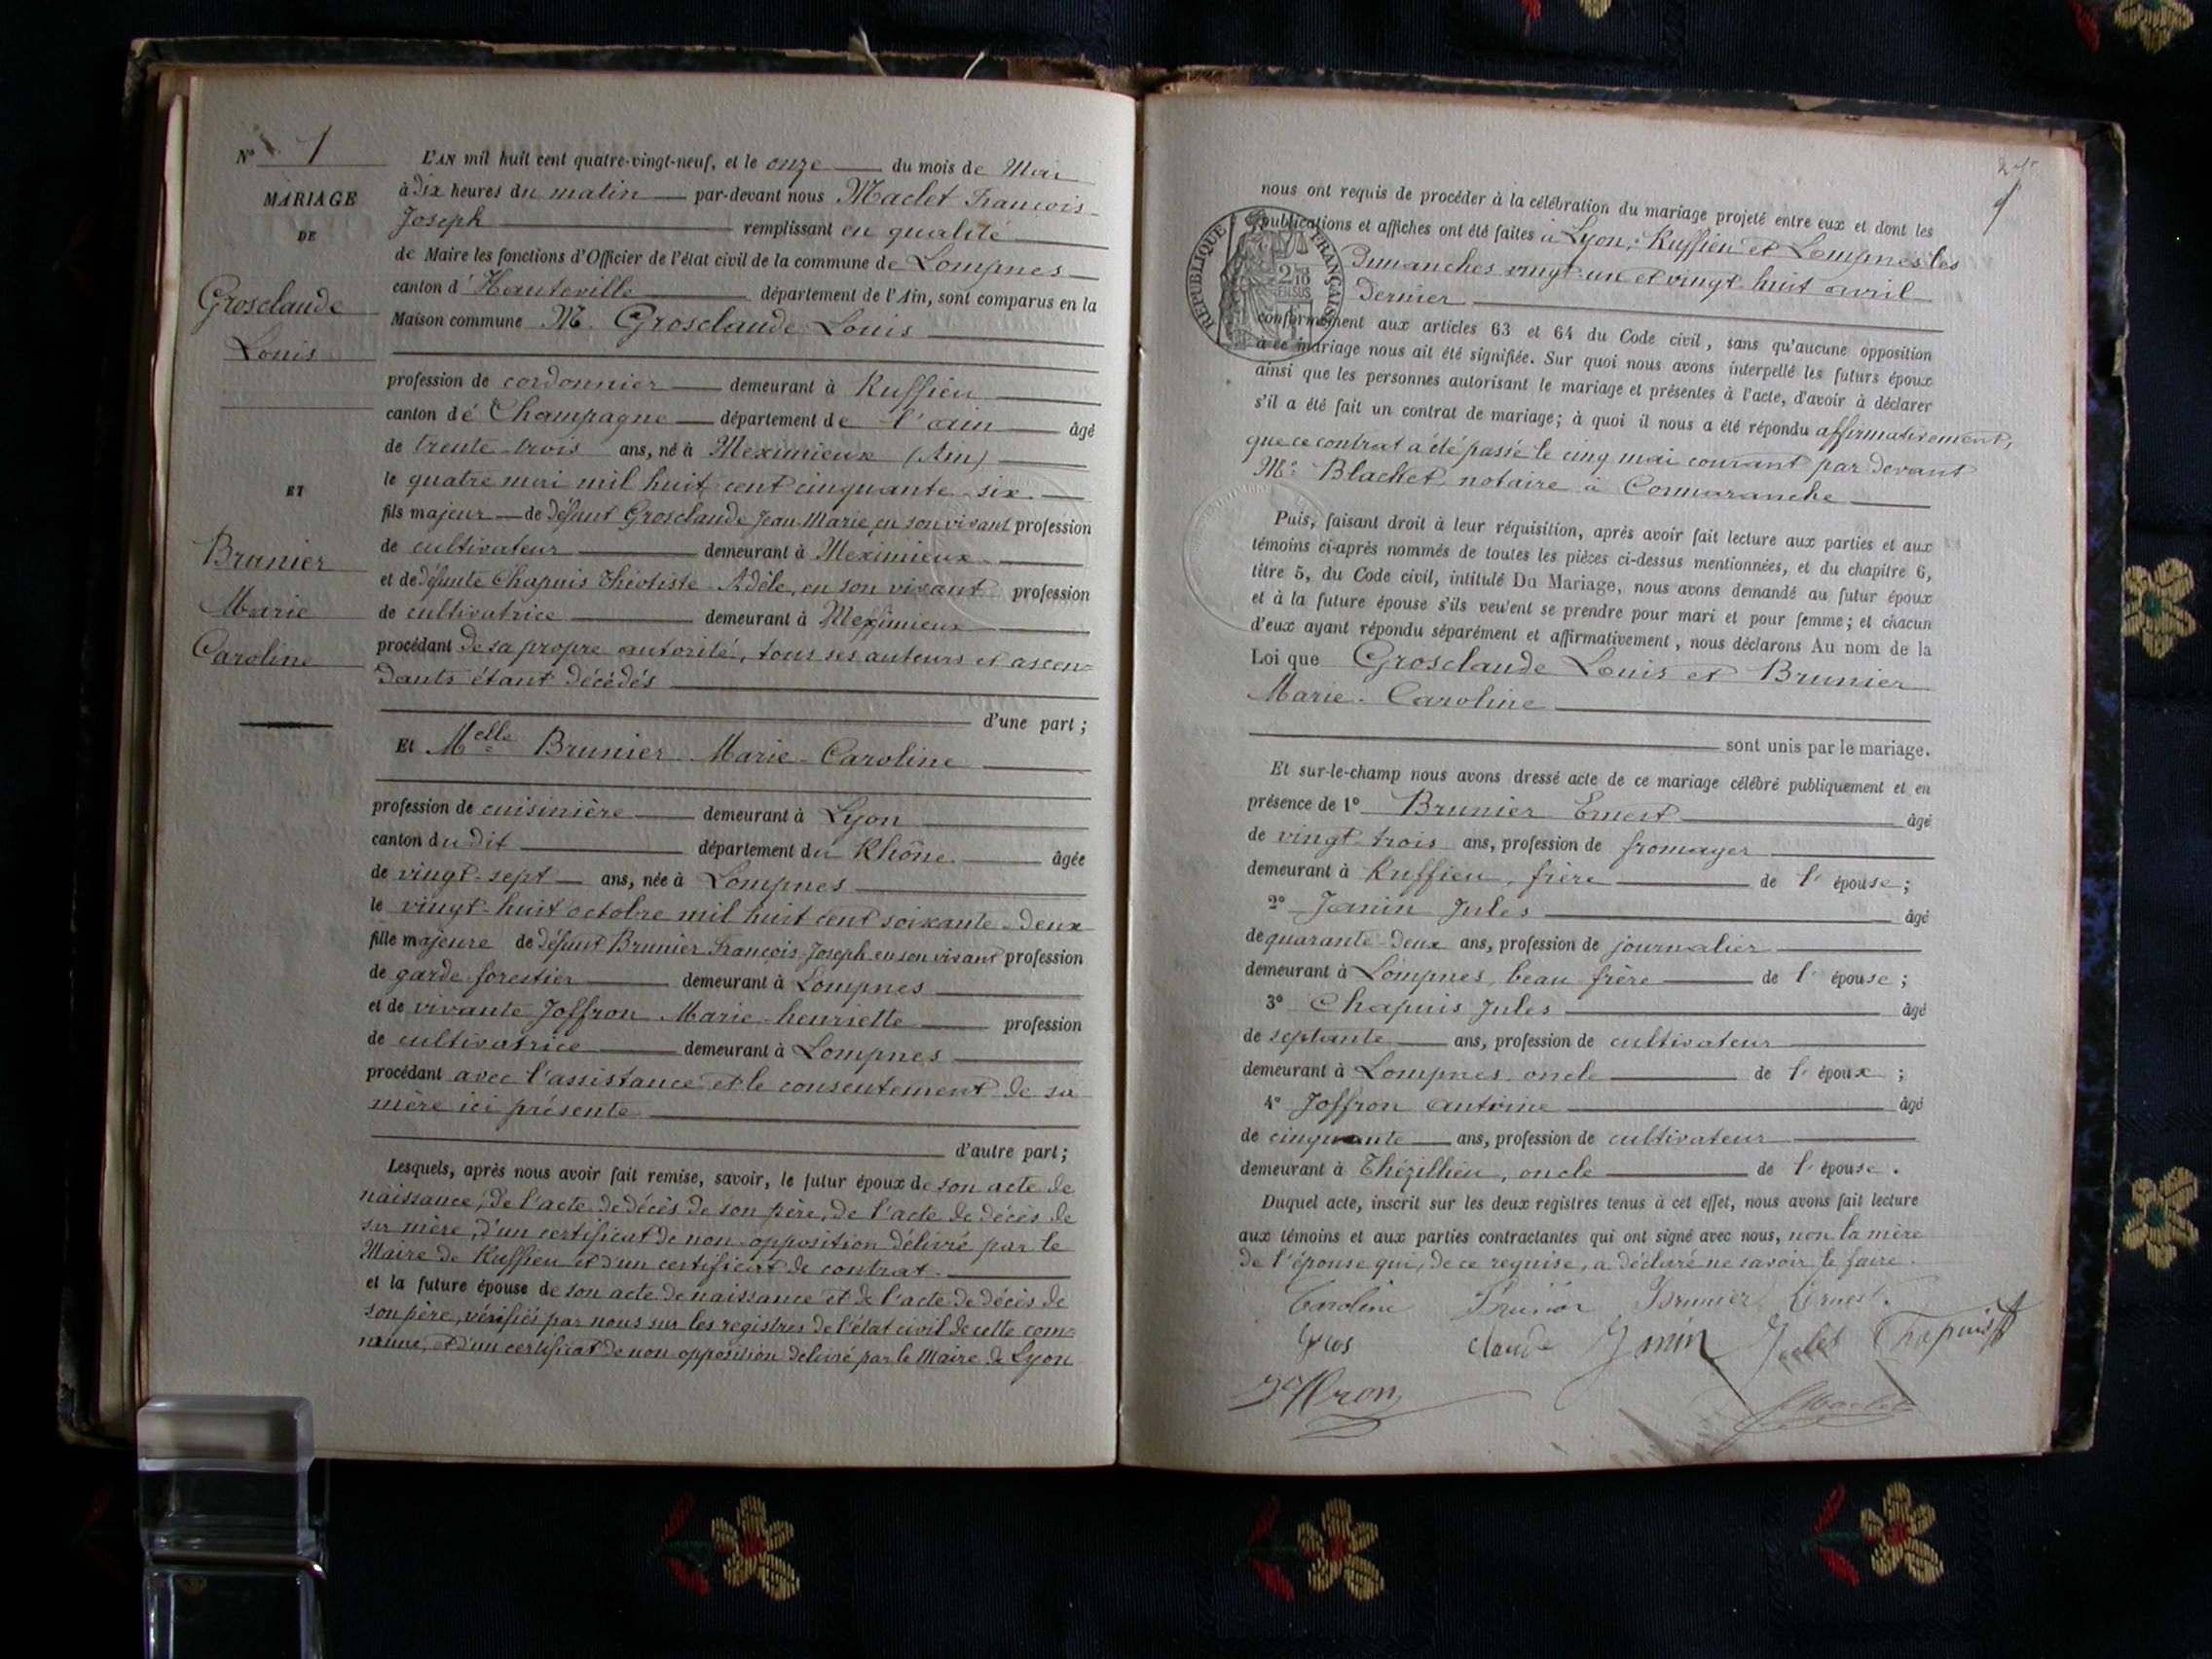 N° 1
MARIAGE
DE
Grosclaude
Louis
ET
Brunier
Marie
Caroline
L'AN mil huit cent quatre-vingt-neuf, et le onze du mois de Mai
à dix heures du matin par-devant nous Maclet François-
Joseph remplissant en qualité
de Maire les fonctions d'Officier de l'état civil de la commune de Lompnes
canton d'Hauteville département de l'Ain, sont comparus en la
Maison commune M. Grosclaude Louis
profession de cordonnier demeurant à Ruffieu
canton de Champagne département de l'ain âgé
de trente-trois ans, né à Meximieux (Ain)
le quatre mai mil huit cent cinquante-six
fils majeur de défunt Grosclaude Jean-Marie, en son vivant profession
de cultivateur demeurant à Meximieux
et de défunte Chapuis Théotiste-Adèle, en son vivant profession
de cultivatrice demeurant à Meximieux
procédant de sa propre autorité, tous ses auteurs et ascen=
dants étant décédés
d'une part ;
Et Melle Brunier Marie-Caroline
profession de cuisinière demeurant à Lyon
canton dudit département du Rhône âgée
de vingt-sept ans, née à Lompnes
le vingt-huit octobre mil huit cent soixante-deux
fille majeure de défunt Brunier François-Joseph en son vivant profession
de garde-forestier demeurant à Lompnes
et de vivante Joffron Marie-henriette profession
de cultivatrice demeurant à Lompnes
procédant avec l'assistance et le consentement de sa
mère ici présente
d'autre part ;
Lesquels, après nous avoir fait remise, savoir, le futur époux de son acte de
naissance, de l'acte de décès de son père, de l'acte de décès de
sa mère, d'un certificat de non-opposition délivré par le
Maire de Ruffieu et d'un certificat de contrat.
et la future épouse de son acte de naissance et de l'acte de décès de
son père, vérifiés par nous sur les registres de l'état civil de cette com=
mune, et d'un certificat de non opposition délivré par le Maire de Lyon
nous ont requis de procéder à la célébration du mariage projeté entre eux et dont les
publications et affiches ont été faites à Lyon, Ruffieu et Lompnes les
Dimanches vingt-un et vingt-huit avril
Dernier
RÉPUBLIQUE FRANÇAISE
conformément aux articles 63 et 64 du Code civil, sans qu'aucune opposition
à ce mariage nous ait été signifiée. Sur quoi nous avons interpellé les futurs époux
ainsi que les personnes autorisant le mariage et présentes à l'acte, d'avoir à déclarer
s'il a été fait un contrat de mariage; à quoi il nous a été répondu affirmativement,
que ce contrat a été passé le cinq mai courant par devant
Me Blachet notaire à Cormaranche
Puis, faisant droit à leur réquisition, après avoir fait lecture aux parties et aux
témoins ci-après nommés de toutes les pièces ci-dessus mentionnées, et du chapitre 6,
titre 5, du Code civil, intitulé Du Mariage, nous avons demandé au futur époux
et à la future épouse s'ils veulent se prendre pour mari et pour femme; et chacun
d'eux ayant répondu séparément et affirmativement, nous déclarons Au nom de la
Loi que Grosclaude Louis et Brunier
Marie-Caroline
sont unis par le mariage.
Et sur-le-champ nous avons dressé acte de ce mariage célébré publiquement et en
présence de 1° Brunier Ernest âgé
de vingt-trois ans, profession de fromager
demeurant à Ruffieu, frère de l'épouse;
2° Janin Jules âgé
de quarante-deux ans, profession de journalier
demeurant à Lompnes, beau frère de l'épouse;
3° Chapuis Jules âgé
de septante ans, profession de cultivateur
demeurant à Lompnes, oncle de l'époux;
4° Joffron antoine âgé
de cinquante ans, profession de cultivateur
demeurant à Thézillieu, oncle de l'épouse.
Duquel acte, inscrit sur les deux registres tenus à cet effet, nous avons fait lecture
aux témoins et aux parties contractantes qui ont signé avec nous, non la mère
de l'épouse qui, de ce requise, a déclaré ne savoir le faire.
Caroline Brunier Brunier Ernest.
Gros claude Janin Chapuis
Joffron Maclet